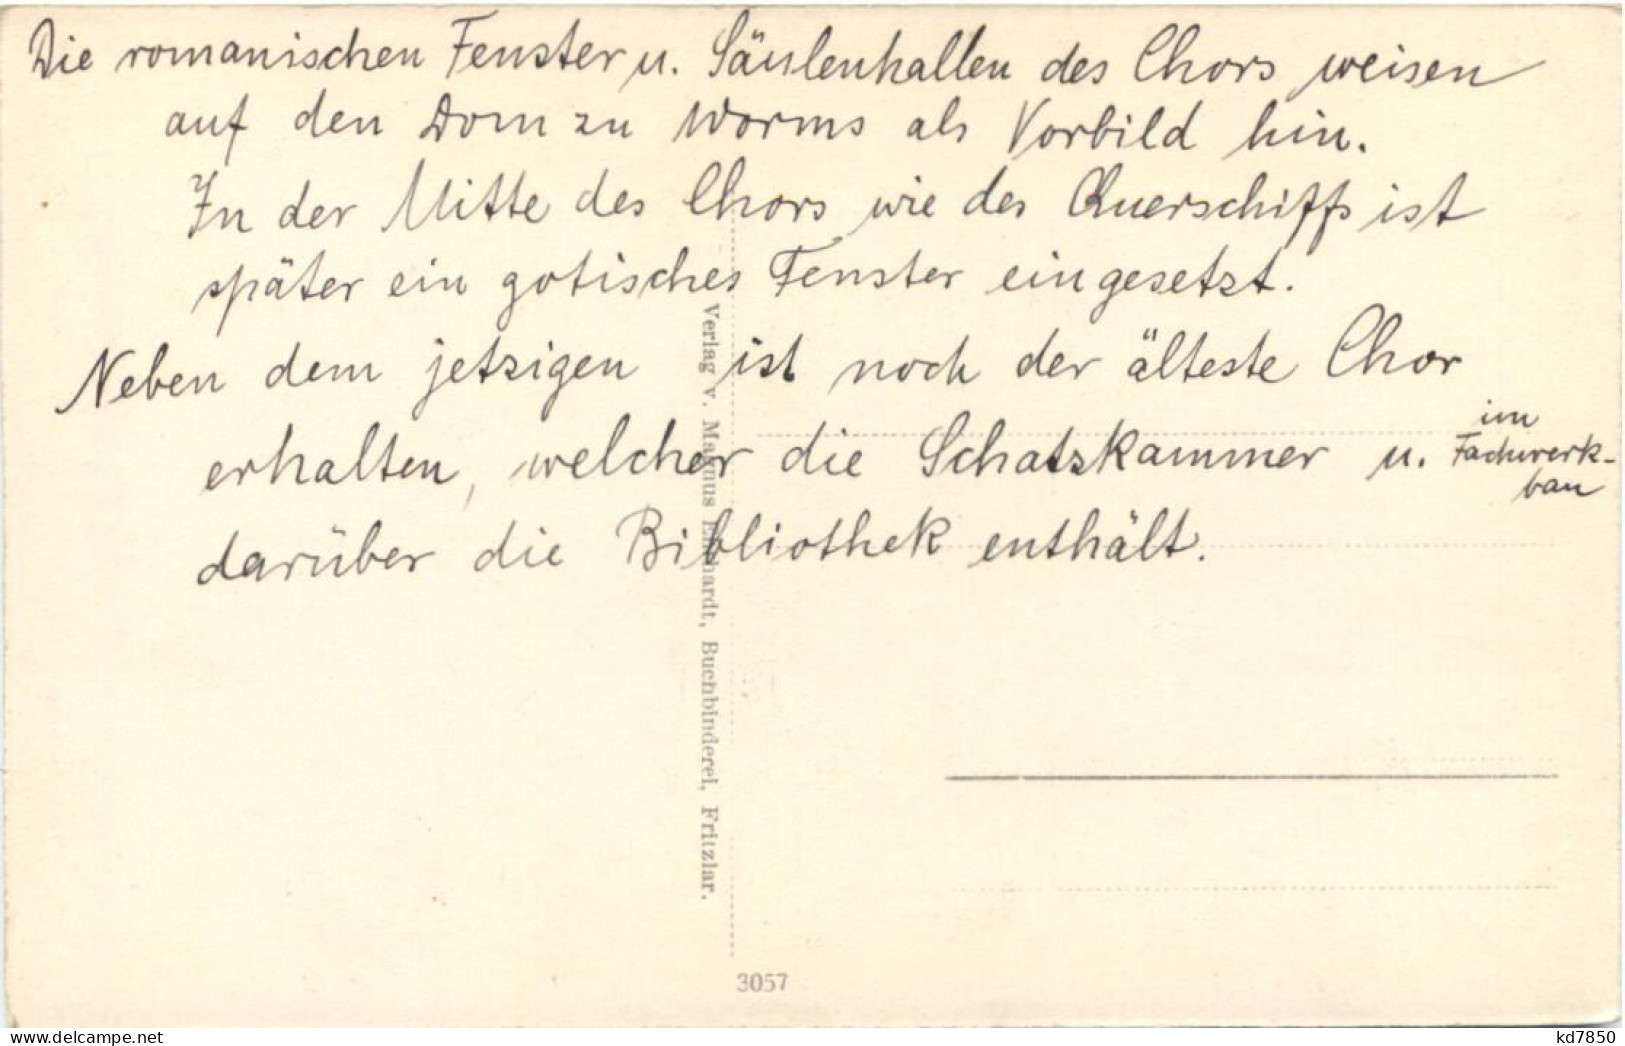 Die romanischen Fenster u. Säulenhallen des Chors weisen
auf den Dom zu Worms als Vorbild hin.
In der Mitte des Chors wie des Querschiffs ist
später ein gotisches Fenster eingesetzt.
Neben dem jetzigen ist noch der älteste Chor
erhalten, welcher die Schatzkammer u. im Fachwerk-
bau
darüber die Bibliothek enthält.
Verlag v. Magnus Ehrhardt, Buchbinderei, Fritzlar.
3057
www.delcampe.net
kd7850